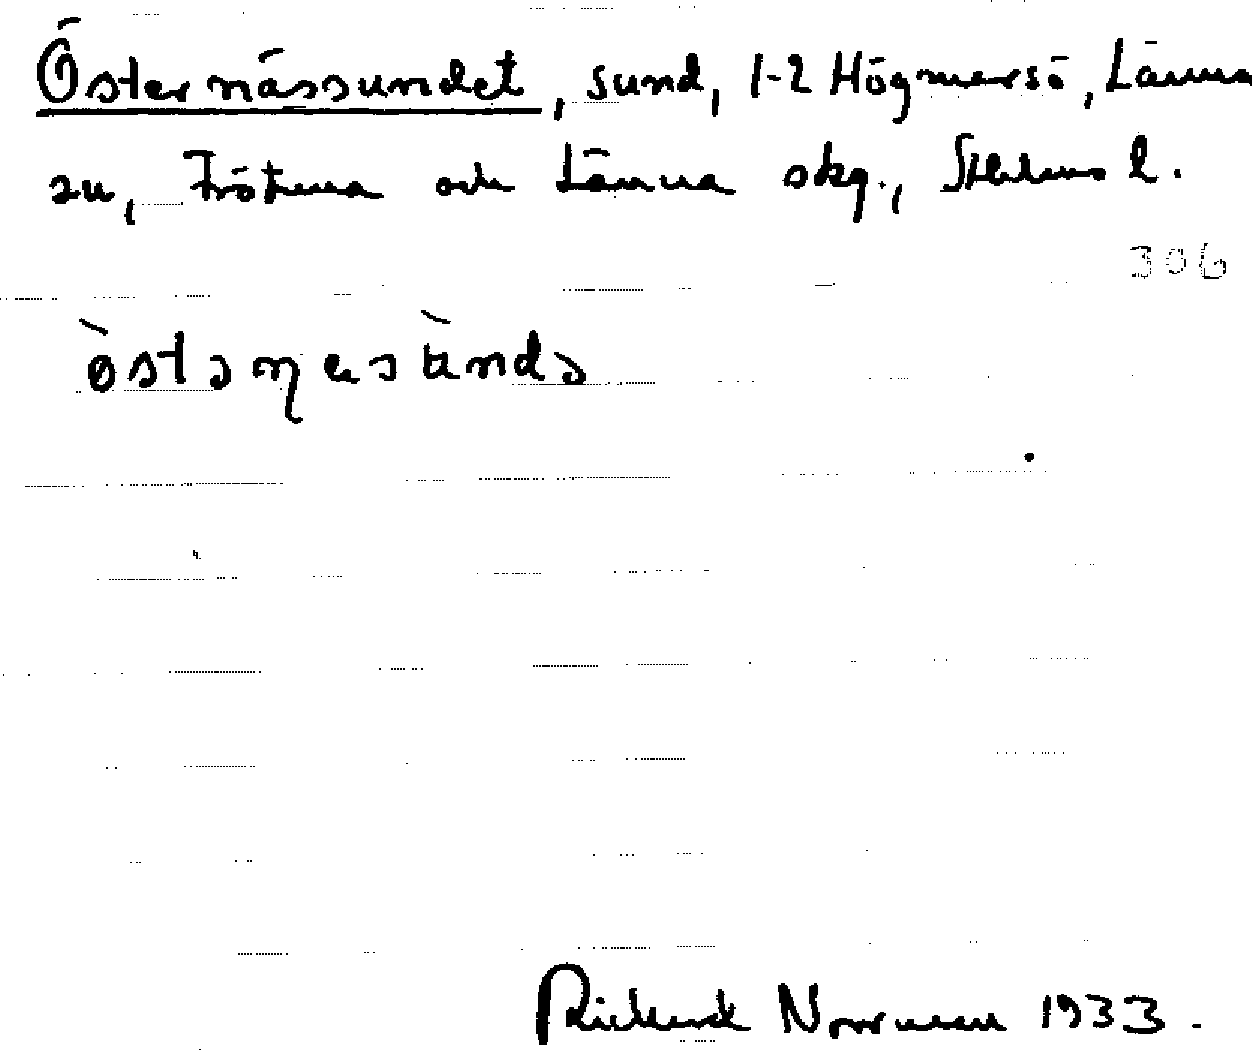 Östernässundet, sund, 1-2 Högmarsö, Länna
sn, Frötuna och Länna skg., Sthlms l.
306
Richard Norrman 1933.